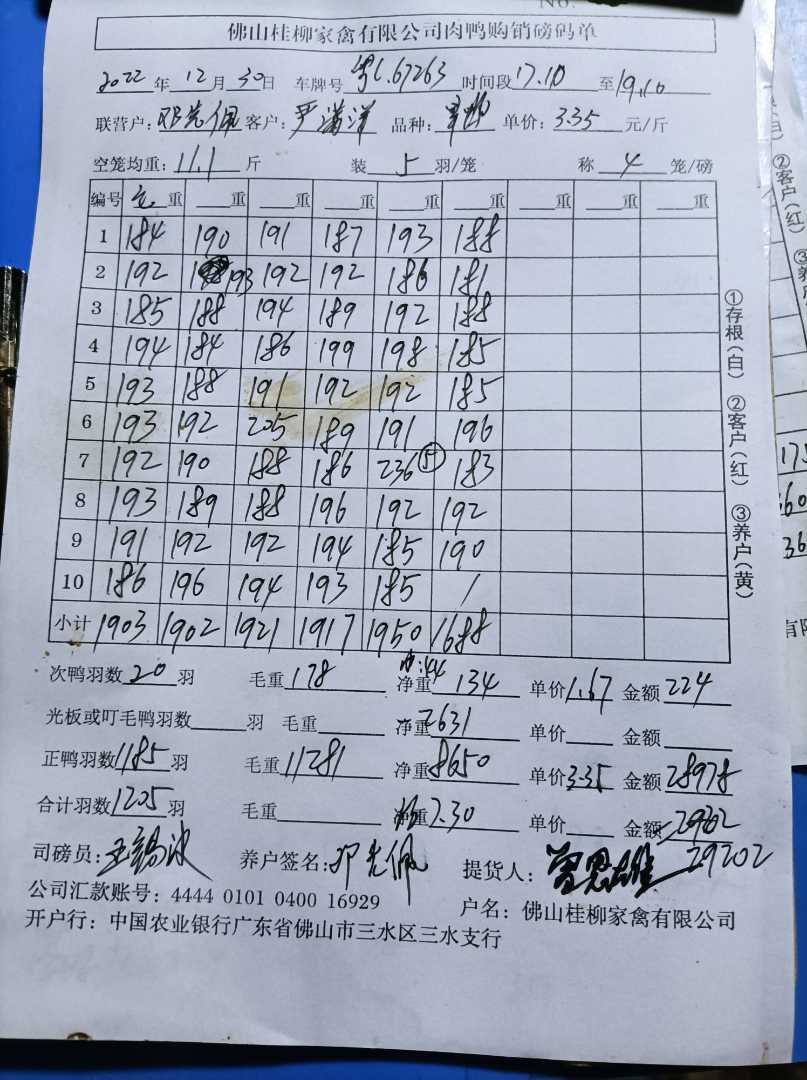 No.
佛山桂柳家禽有限公司肉鸭购销磅码单
2022年12月30日 车牌号粤C.67263 时间段17.10至19.10
联营户:邓光佩 客户:严满洋 品种: 单价:3.35元/斤
空笼均重:11.1斤 装5羽/笼 称4笼/磅
编号 毛重 重 重 重 重 重 重 重 重
1 184 190 191 187 193 188
2 192 193 192 192 186 181
3 185 188 194 189 192 188
4 194 184 186 199 198 185
5 193 188 191 192 192 185
6 193 192 205 189 191 196
7 192 190 188 186 236⑤ 183
8 193 189 188 196 192 192
9 191 192 192 194 185 190
10 186 196 194 193 185 /
小计 1903 1902 1921 1917 1950 1688
①存根(白) ②客户(红) ③养户(黄)
:44
次鸭羽数20羽 毛重178 净重134 单价1.67 金额224
光板或叮毛鸭羽数 羽 毛重 净重2631 单价 金额
正鸭羽数1185羽 毛重11281 净重8650 单价3.35 金额28978
合计羽数1205羽 毛重 净重7.30 单价 金额29202
29202
司磅员:王锡冰 养户签名:邓光佩 提货人:曾思雄
公司汇款账号:4444 0101 0400 16929 户名:佛山桂柳家禽有限公司
开户行:中国农业银行广东省佛山市三水区三水支行
②客户(红)
175
360
36